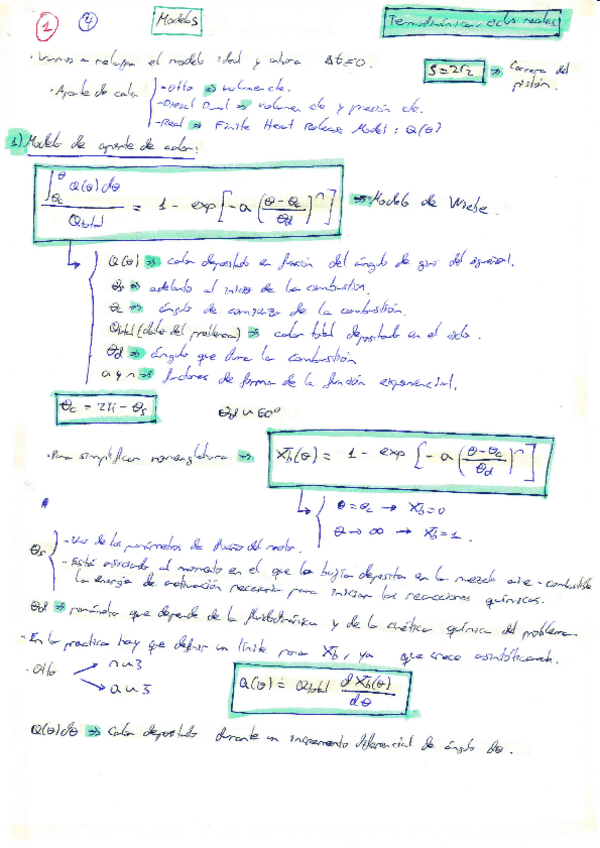 1 4 Modelos Termodinámica: ciclos reales
· Vamos a relajar el modelo ideal y ahora Δt≠0. S = 2r2 ⇒ Carrera del pistón.
· Aporte de calor
- Otto ⇒ volumen cte.
- Diesel Dual ⇒ volumen cte y presión cte.
- Real ⇒ Finite Heat Release Model: Q(θ)
1) Modelo de aporte de calor:
∫θc^θ Q(θ)dθ / Qtotal = 1 - exp[-a((θ-θc)/θd)^n] ⇒ Modelo de Wiebe.
Q(θ) ⇒ calor depositado en función del ángulo de giro del cigüeñal.
θs ⇒ adelanto al inicio de la combustión.
θc ⇒ ángulo de comienzo de la combustión.
Qtotal (dato del problema) ⇒ calor total depositado en el ciclo.
θd ⇒ ángulo que dura la combustión
a y n ⇒ factores de forma de la función exponencial.
θc = 2π - θs θd ~ 60°
· Para simplificar nomenclatura ⇒ Xb(θ) = 1 - exp[-a((θ-θc)/θd)^n]
θ = θc → Xb = 0
θ → ∞ → Xb = 1.
θs
- Uno de los parámetros de diseño del motor.
- Está asociado al momento en el que la bujía deposita en la mezcla aire-combustible
la energía de activación necesaria para iniciar las reacciones químicas.
θd ⇒ parámetro que depende de la fluidodinámica y de la cinética química del problema
- En la practica hay que definir un límite para Xb, ya que crece asintóticamente.
· Otto → n ~ 3
→ a ~ 5
Q(θ) = Qtotal dXb(θ)/dθ
Q(θ)dθ ⇒ Calor depositado durante un incremento diferencial de ángulo dθ.